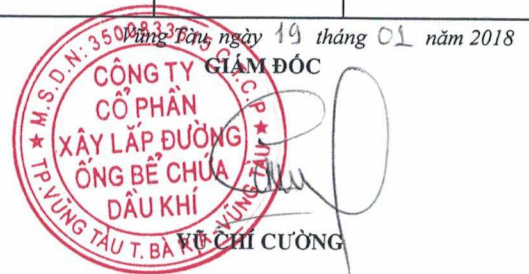 Vũng Tàu, ngày 19 tháng 01 năm 2018
GIÁM ĐỐC
CÔNG TY
CỔ PHẦN
XÂY LẮP ĐƯỜNG
ỐNG BỂ CHỨA
DẦU KHÍ
M.S.D.N: C.T.C.P
TP. VŨNG TÀU T. BÀ RỊA VŨNG TÀU
VŨ CHÍ CƯỜNG